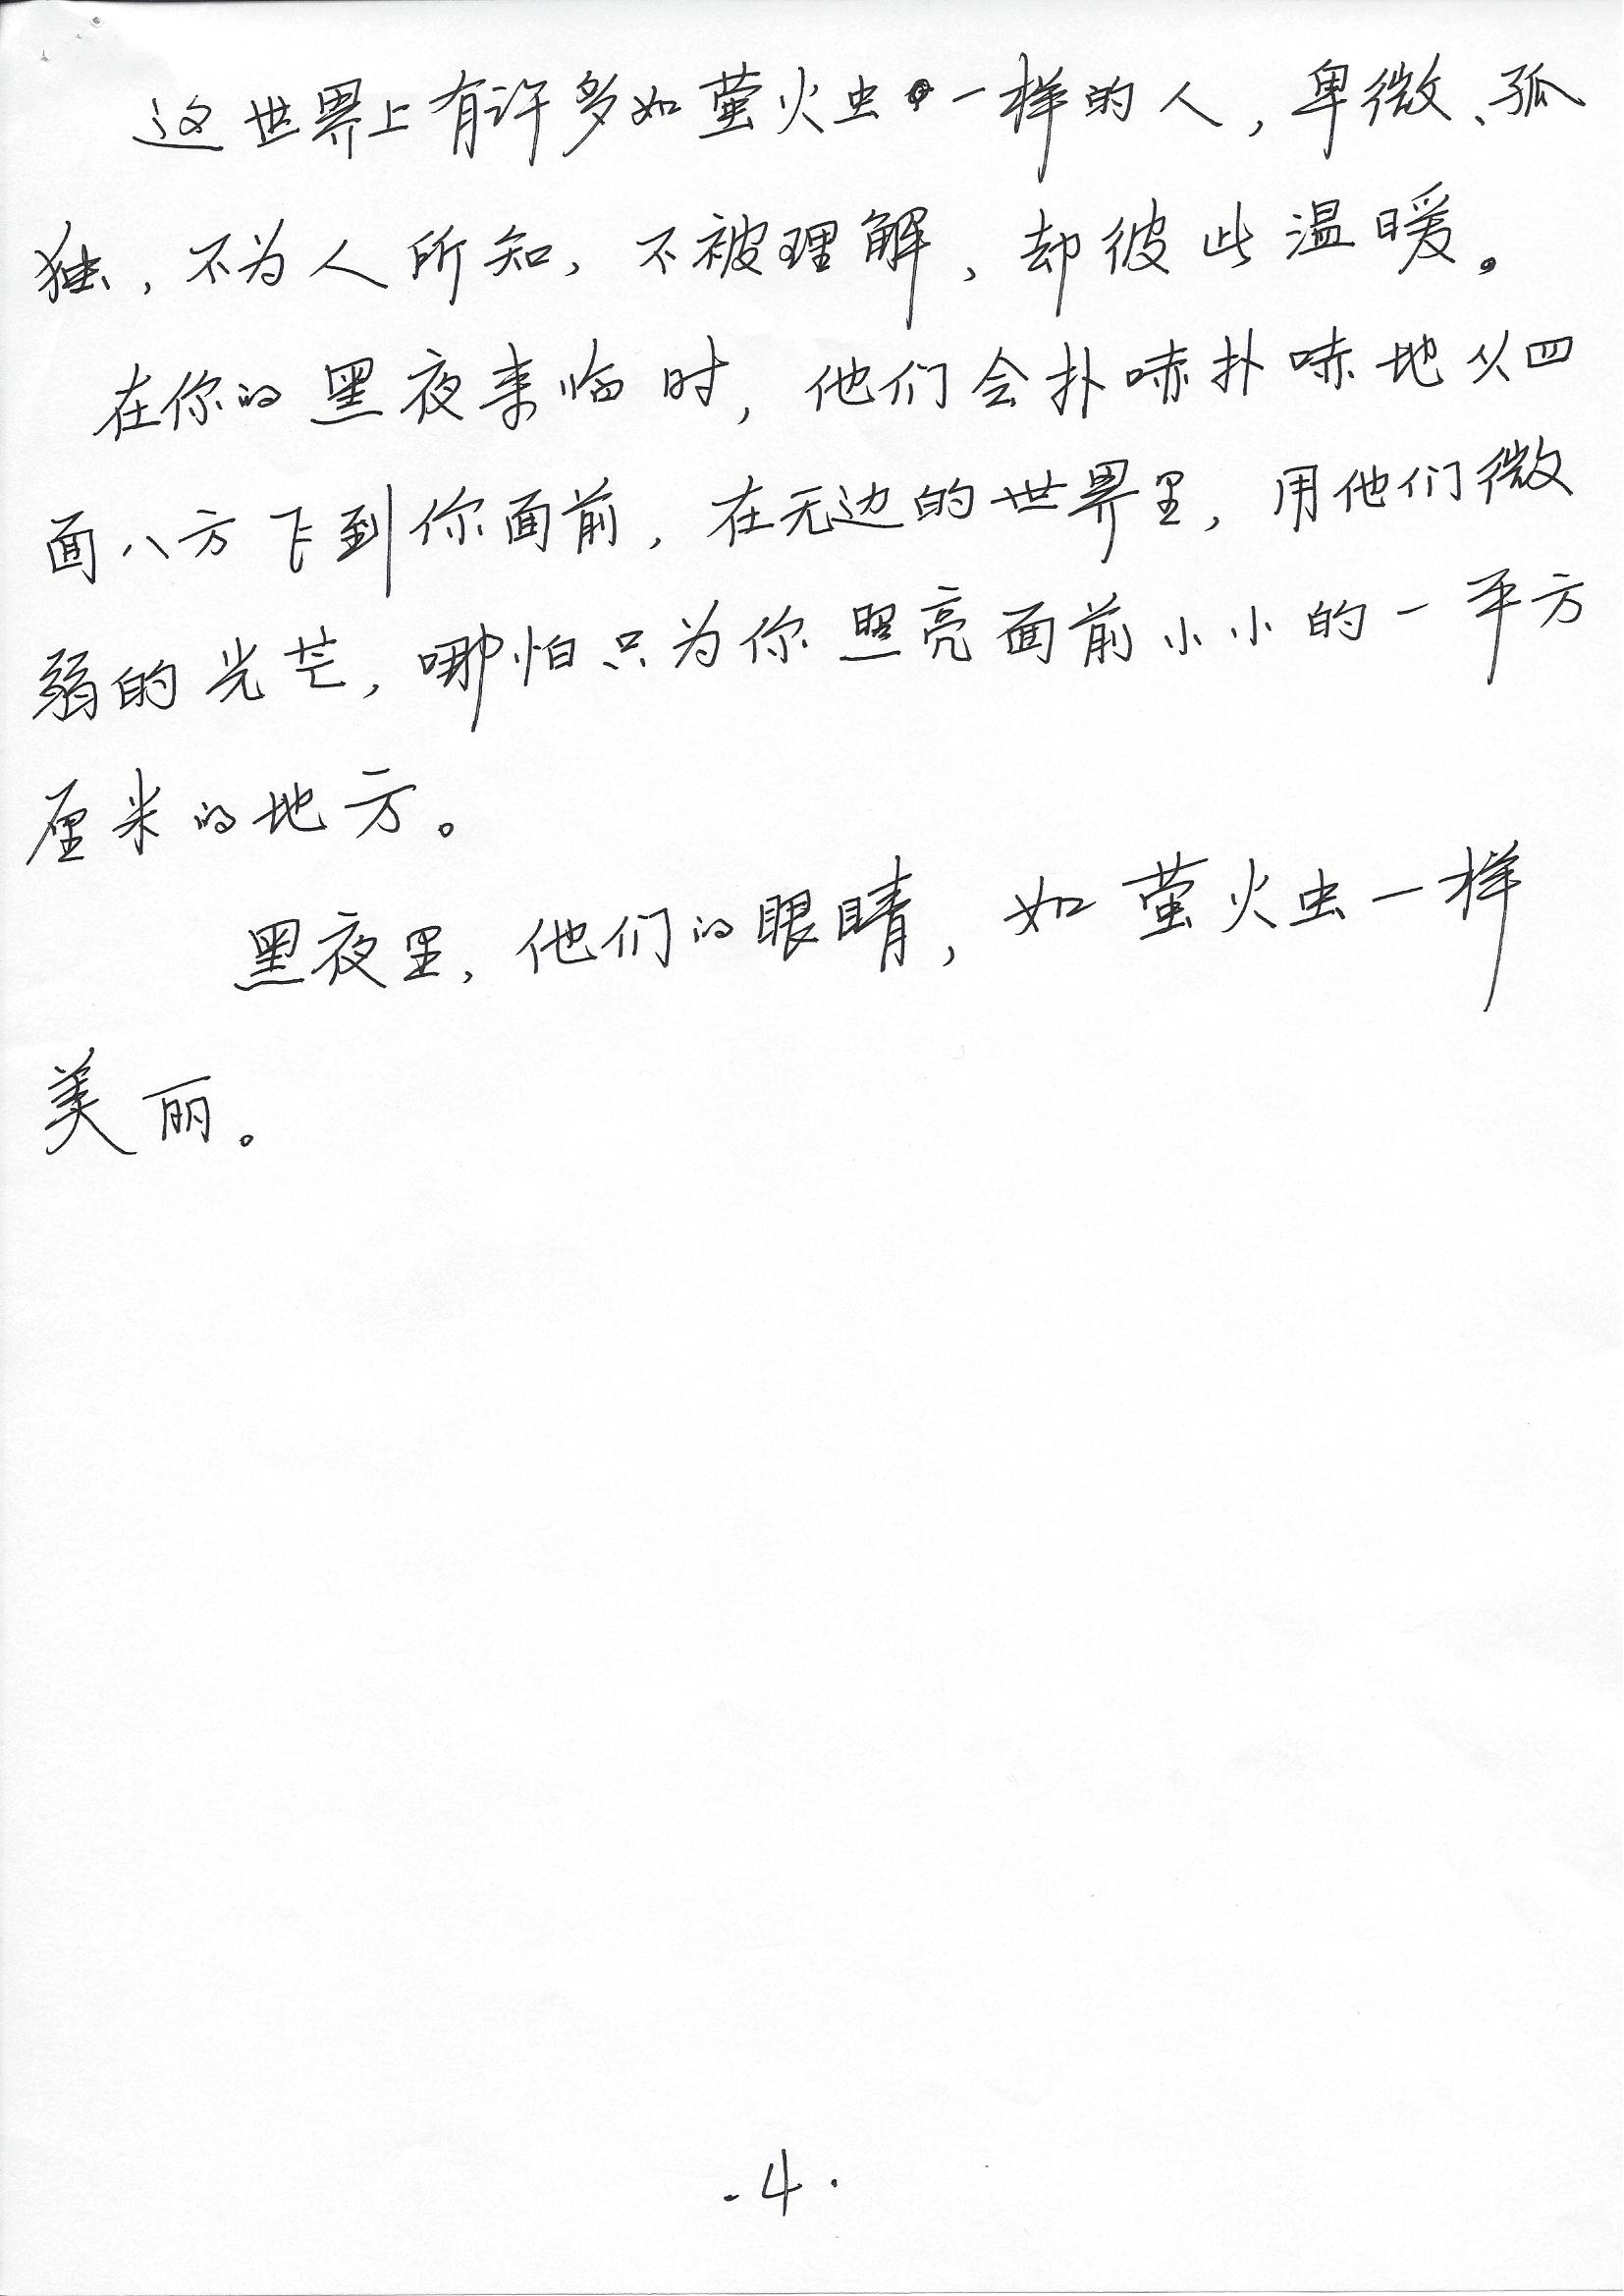 这世界上有许多如萤火虫一样的人，卑微、孤
独，不为人所知，不被理解，却彼此温暖。
在你的黑夜来临时，他们会扑哧扑哧地从四
面八方飞到你面前，在无边的世界里，用他们微
弱的光芒，哪怕只为你照亮面前小小的一平方
厘米的地方。
黑夜里，他们的眼睛，如萤火虫一样
美丽。
·4·